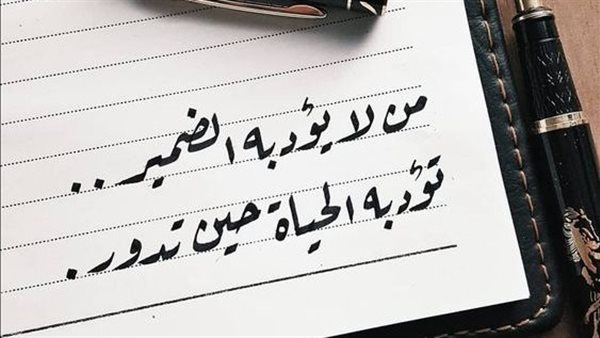 من لا يؤدبه الضمير ..
تؤدبه الحياة حين تدور .